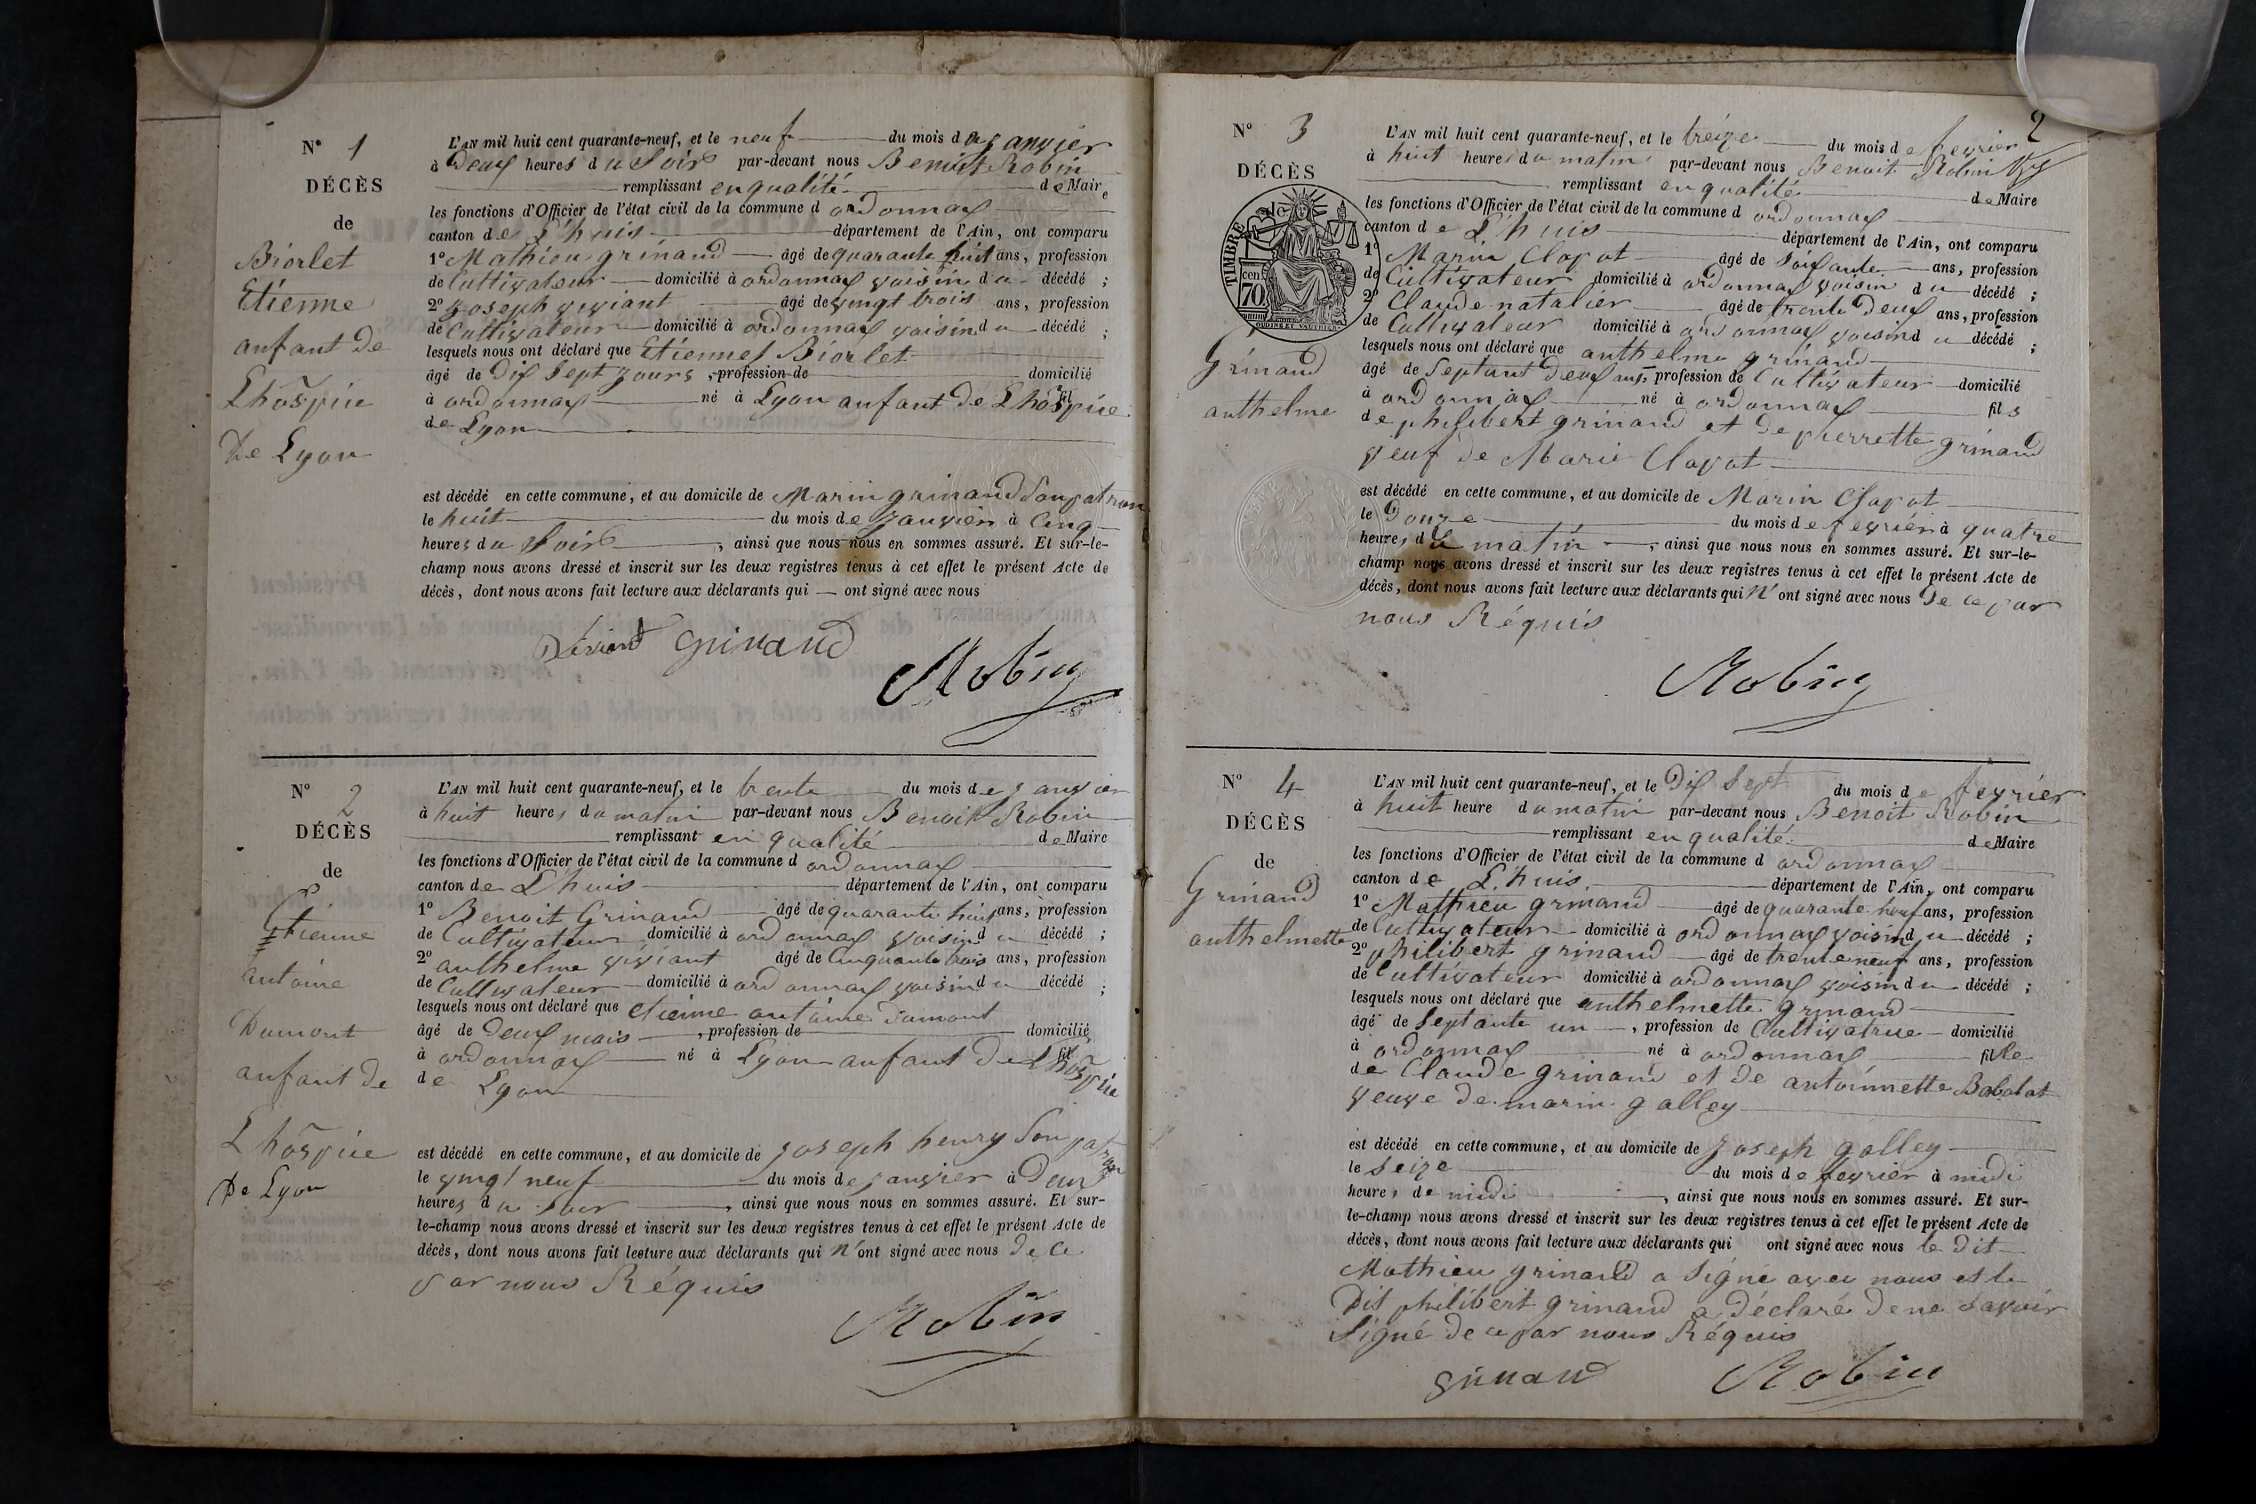 N° 1
DÉCÈS
de
Biorlet
Etienne
anfant de
Lhôspice
De Lyon
L'AN mil huit cent quarante-neuf, et le neuf du mois de janvier
à Deux heures du Soir par-devant nous Benoit Robin
remplissant en qualité de Maire
les fonctions d'Officier de l'état civil de la commune d ordonnax
canton de L'huis département de l'Ain, ont comparu
1° Mathieu grinand âgé de quarante huit ans, profession
de Cultivateur domicilié à ordonnax voisin du décédé ;
2° Joseph viviant âgé de vingt trois ans, profession
de Cultivateur domicilié à ordonnax voisin du décédé ;
lesquels nous ont déclaré que Etiennes Biorlet
âgé de Dix Sept jours, profession de domicilié
à ordonnax né à Lyon anfant de Lhôspice
de Lyon
est décédé en cette commune, et au domicile de Marin grinand Son patron
le huit du mois de janvier à Cinq
heures du Soir, ainsi que nous nous en sommes assuré. Et sur-le-
champ nous avons dressé et inscrit sur les deux registres tenus à cet effet le présent Acte de
décès, dont nous avons fait lecture aux déclarants qui ont signé avec nous
grinand
Robin
N° 2
DÉCÈS
de
Etienne
antoine
Dumont
anfant de
Lhôspice
De Lyon
L'AN mil huit cent quarante-neuf, et le trente du mois de janvier
à huit heures du matin par-devant nous Benoit Robin
remplissant en qualité de Maire
les fonctions d'Officier de l'état civil de la commune d ordonnax
canton de L'huis département de l'Ain, ont comparu
1° Benoit Grinand âgé de quarante huit ans, profession
de Cultivateur domicilié à ordonnax voisin du décédé ;
2° anthelme viviant âgé de Cinquante trois ans, profession
de Cultivateur domicilié à ordonnax voisin du décédé ;
lesquels nous ont déclaré que etienne antoine Dumont
âgé de deux mois, profession de domicilié
à ordonnax né à Lyon anfant de Lhospice
de Lyon
est décédé en cette commune, et au domicile de joseph henry Son patron
le vingt neuf du mois de janvier à Deux
heures du Soir, ainsi que nous nous en sommes assuré. Et sur-
le-champ nous avons dressé et inscrit sur les deux registres tenus à cet effet le présent Acte de
décès, dont nous avons fait lecture aux déclarants qui n'ont signé avec nous de ce
par nous Réquis
Robin
2
N° 3
DÉCÈS
TIMBRE
cen
70
Grinand
anthelme
L'AN mil huit cent quarante-neuf, et le treize du mois de fevrier
à huit heures du matin par-devant nous Benoit Robin
remplissant en qualité de Maire
les fonctions d'Officier de l'état civil de la commune d ordonnax
canton de L'huis département de l'Ain, ont comparu
1° Marin Clapot âgé de Soixante ans, profession
de Cultivateur domicilié à ordonnax voisin du décédé ;
2° Claude natalier âgé de trente Deux ans, profession
de Cultivateur domicilié à ordonnax voisin du décédé ;
lesquels nous ont déclaré que anthelme grinand
âgé de Septant Deux ans, profession de Cultivateur domicilié
à ordonnax né à ordonnax fils
de philibert grinand et de pierrette grinand
veuf de Marie Clapot
est décédé en cette commune, et au domicile de Marin Clapot
le Douze du mois de fevrier à quatre
heures du matin, ainsi que nous nous en sommes assuré. Et sur-le-
champ nous avons dressé et inscrit sur les deux registres tenus à cet effet le présent Acte de
décès, dont nous avons fait lecture aux déclarants qui N'ont signé avec nous De ce par
nous Réquis
Robin
N° 4
DÉCÈS
de
Grinand
anthelmette
L'AN mil huit cent quarante-neuf, et le Dix Sept du mois de fevrier
à huit heure du matin par-devant nous Benoit Robin
remplissant en qualité de Maire
les fonctions d'Officier de l'état civil de la commune d ordonnax
canton de L'huis département de l'Ain, ont comparu
1° Mathieu grinand âgé de quarante huit ans, profession
de Cultivateur domicilié à ordonnax voisin du décédé ;
2° philibert grinand âgé de trente neuf ans, profession
de Cultivateur domicilié à ordonnax voisin du décédé ;
lesquels nous ont déclaré que anthelmette grinand
âgé de Septante un, profession de Cultivatrice domicilié
à ordonnax né à ordonnax fille
de Claude grinand et de antoinnette Babolat
veuve de marin golley
est décédé en cette commune, et au domicile de Joseph golley
le Seize du mois de fevrier à midi
heures de midi, ainsi que nous nous en sommes assuré. Et sur-
le-champ nous avons dressé et inscrit sur les deux registres tenus à cet effet le présent Acte de
décès, dont nous avons fait lecture aux déclarants qui ont signé avec nous le dit
Mathieu grinand a Signé avec nous et le
Dit philibert grinand a Déclaré De ne Savoir
Signé De ce par nous Réquis
grinand Robin